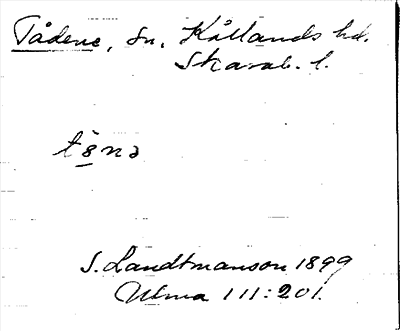 Tådene, sn. Kållands hd.
Skarab. l.
tä̀nə
S. Landtmanson 1899
Utma 111:201.